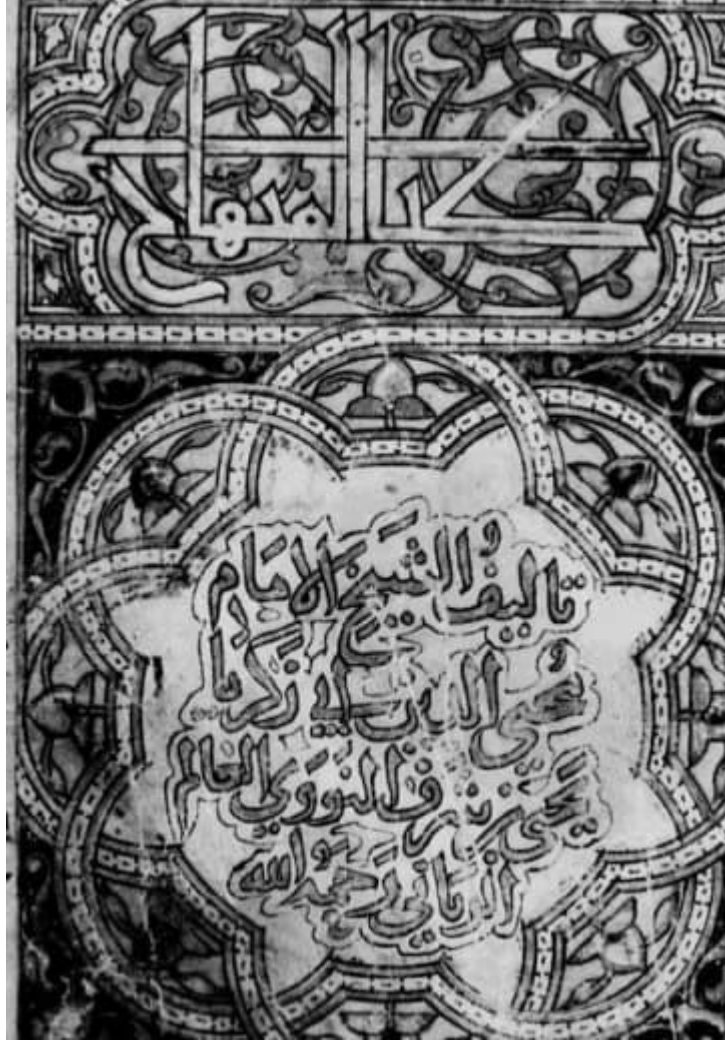 كتاب المنهاج
تاليف الشيخ الامام
محيي الدين ابي زكريا
يحيى بن شرف النووي العالم
الرباني رحمه الله